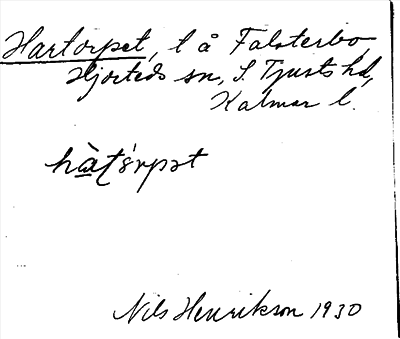 Hartorpet, t å Falsterbo,
Hjorteds sn, S. Tjusts hd,
Kalmar l.
hàʈórpət
Nils Henrikson 1930